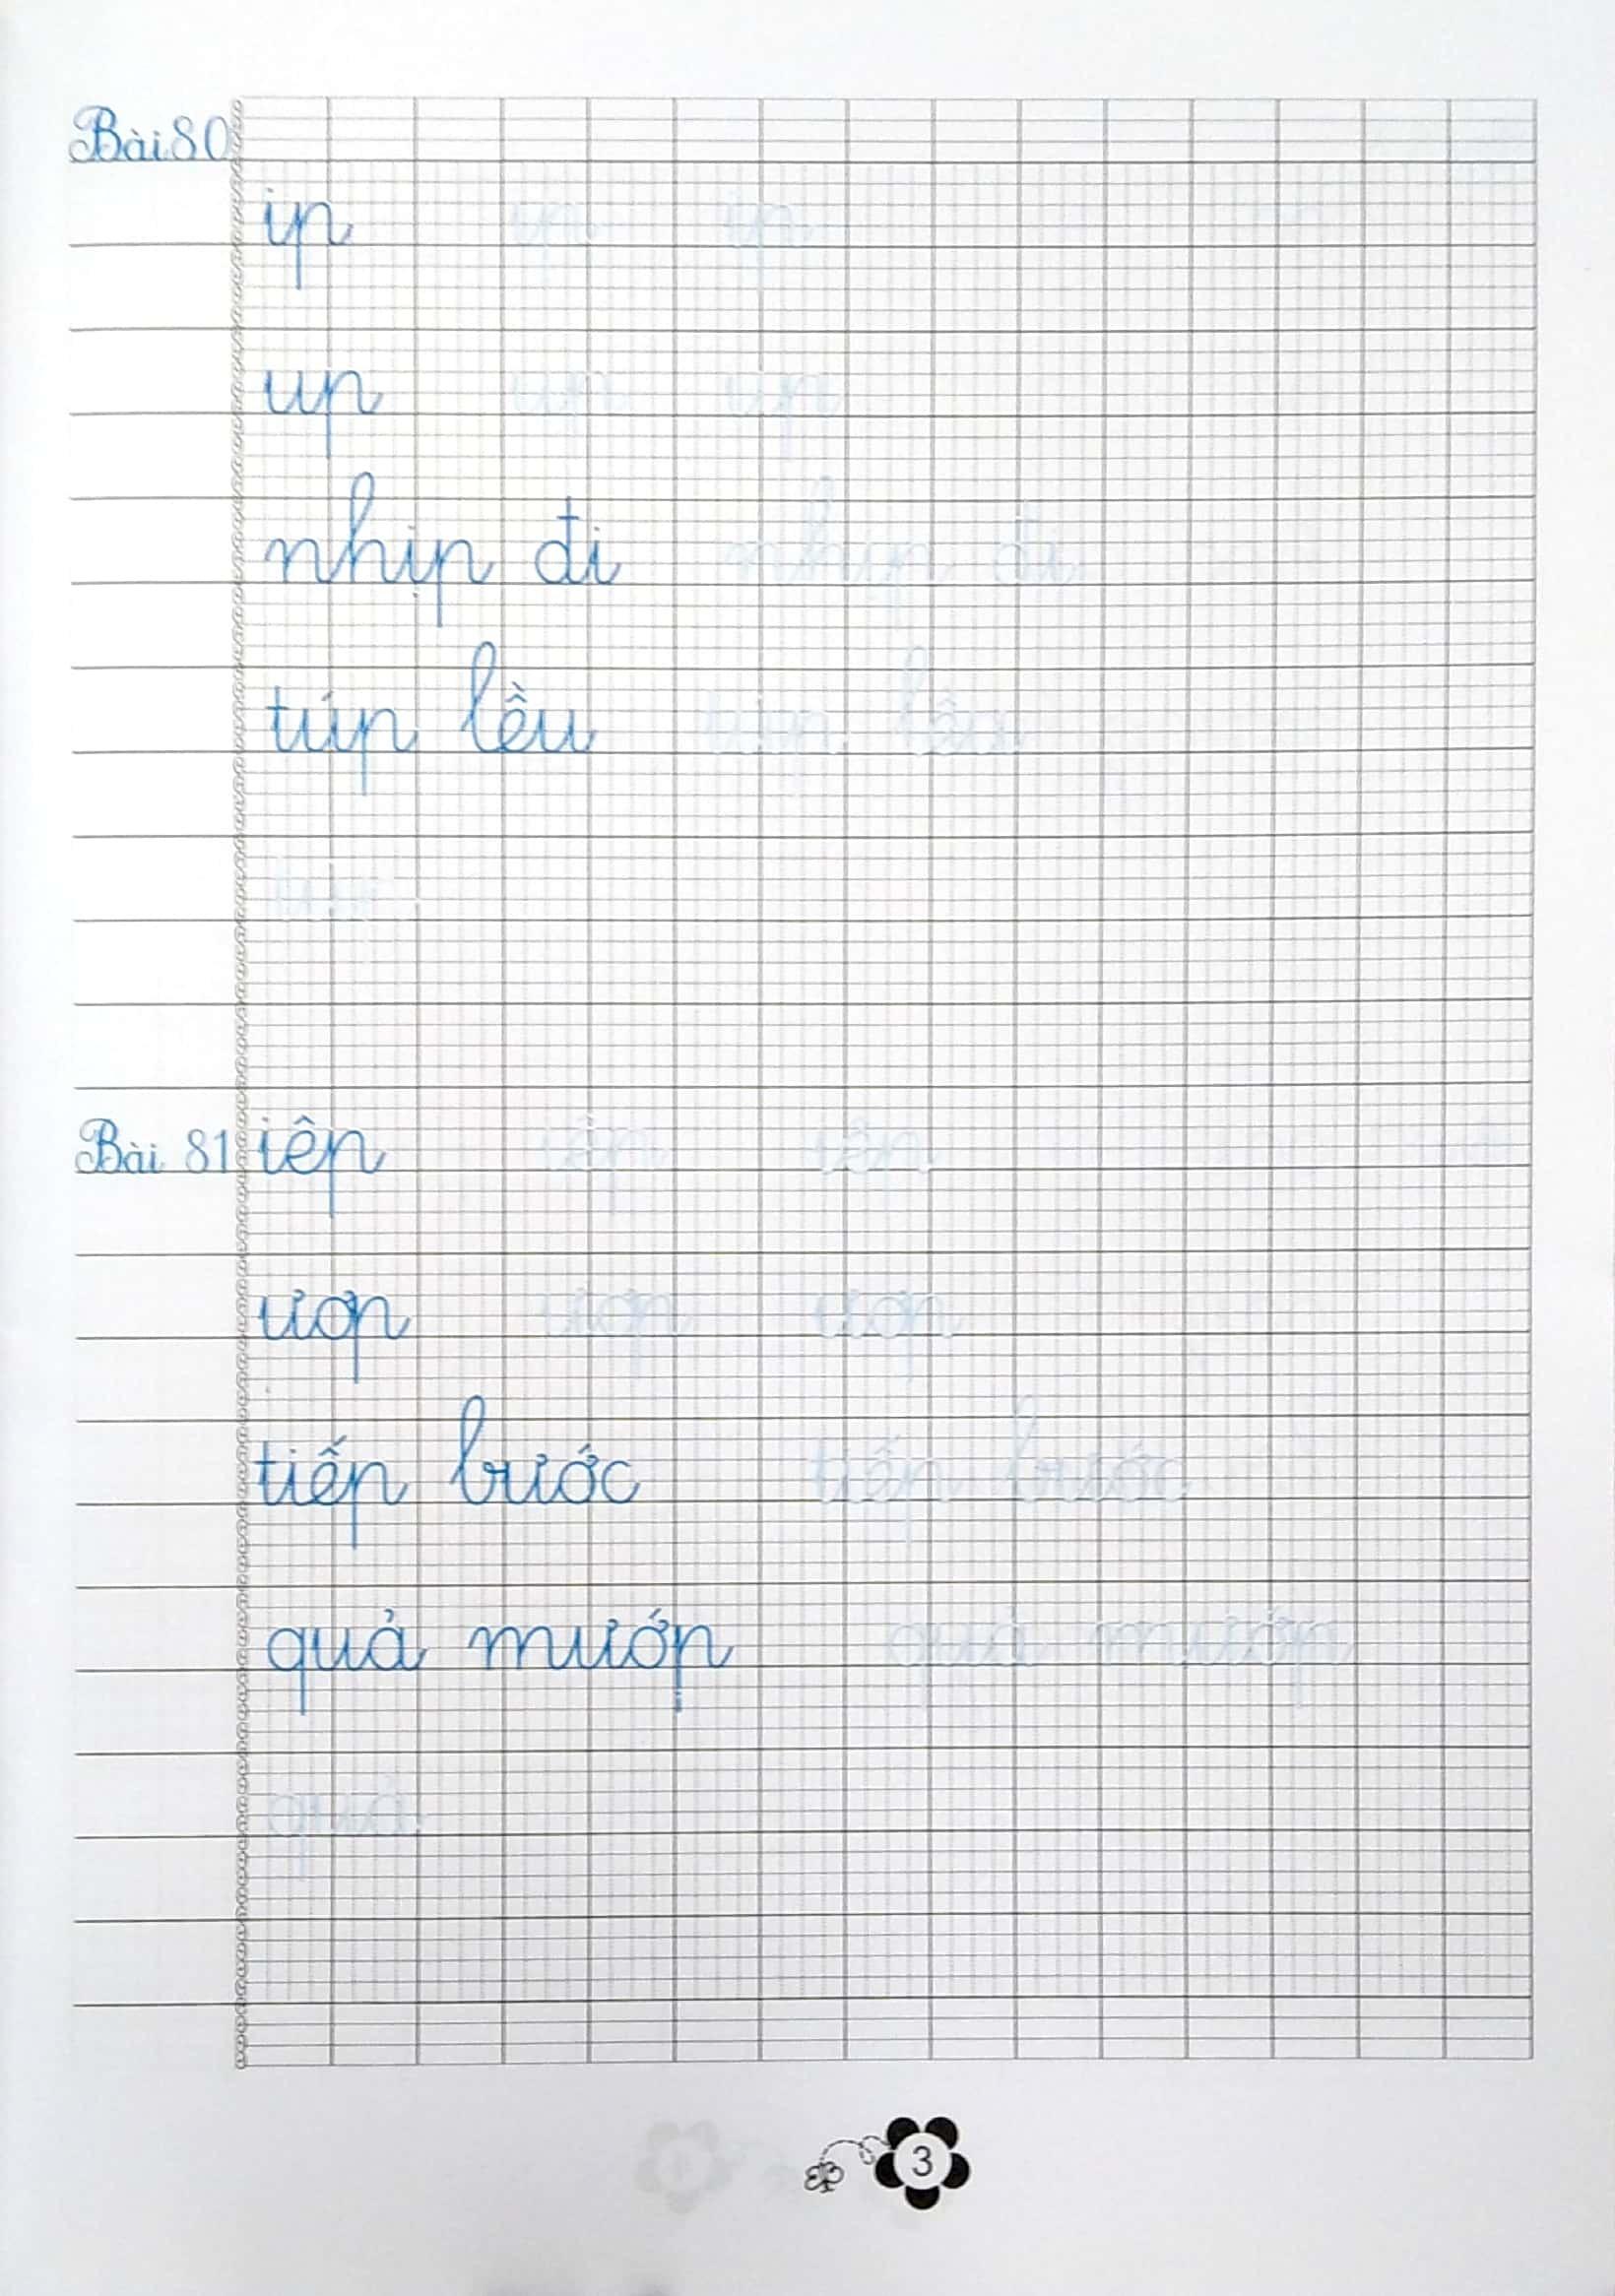 Bài 80
ip ip ip
up up up
nhịp đi nhịp đi
túp lều túp lều
túp
Bài 81 iêp iêp iêp
ươp ươp ươp
tiếp bước tiếp bước
quả mướp quả mướp
quả
3